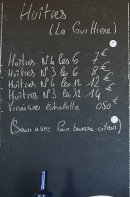 Huîtres
(La Guittière)
Huîtres N°4 les 6 7 €
Huîtres N°3 les 6 8 €
Huîtres N°4 les 12 12 €
Huîtres N°3 les 12 14 €
Vinaigre échalotte 0.50 €
(Servi avec Pain beurre citron)